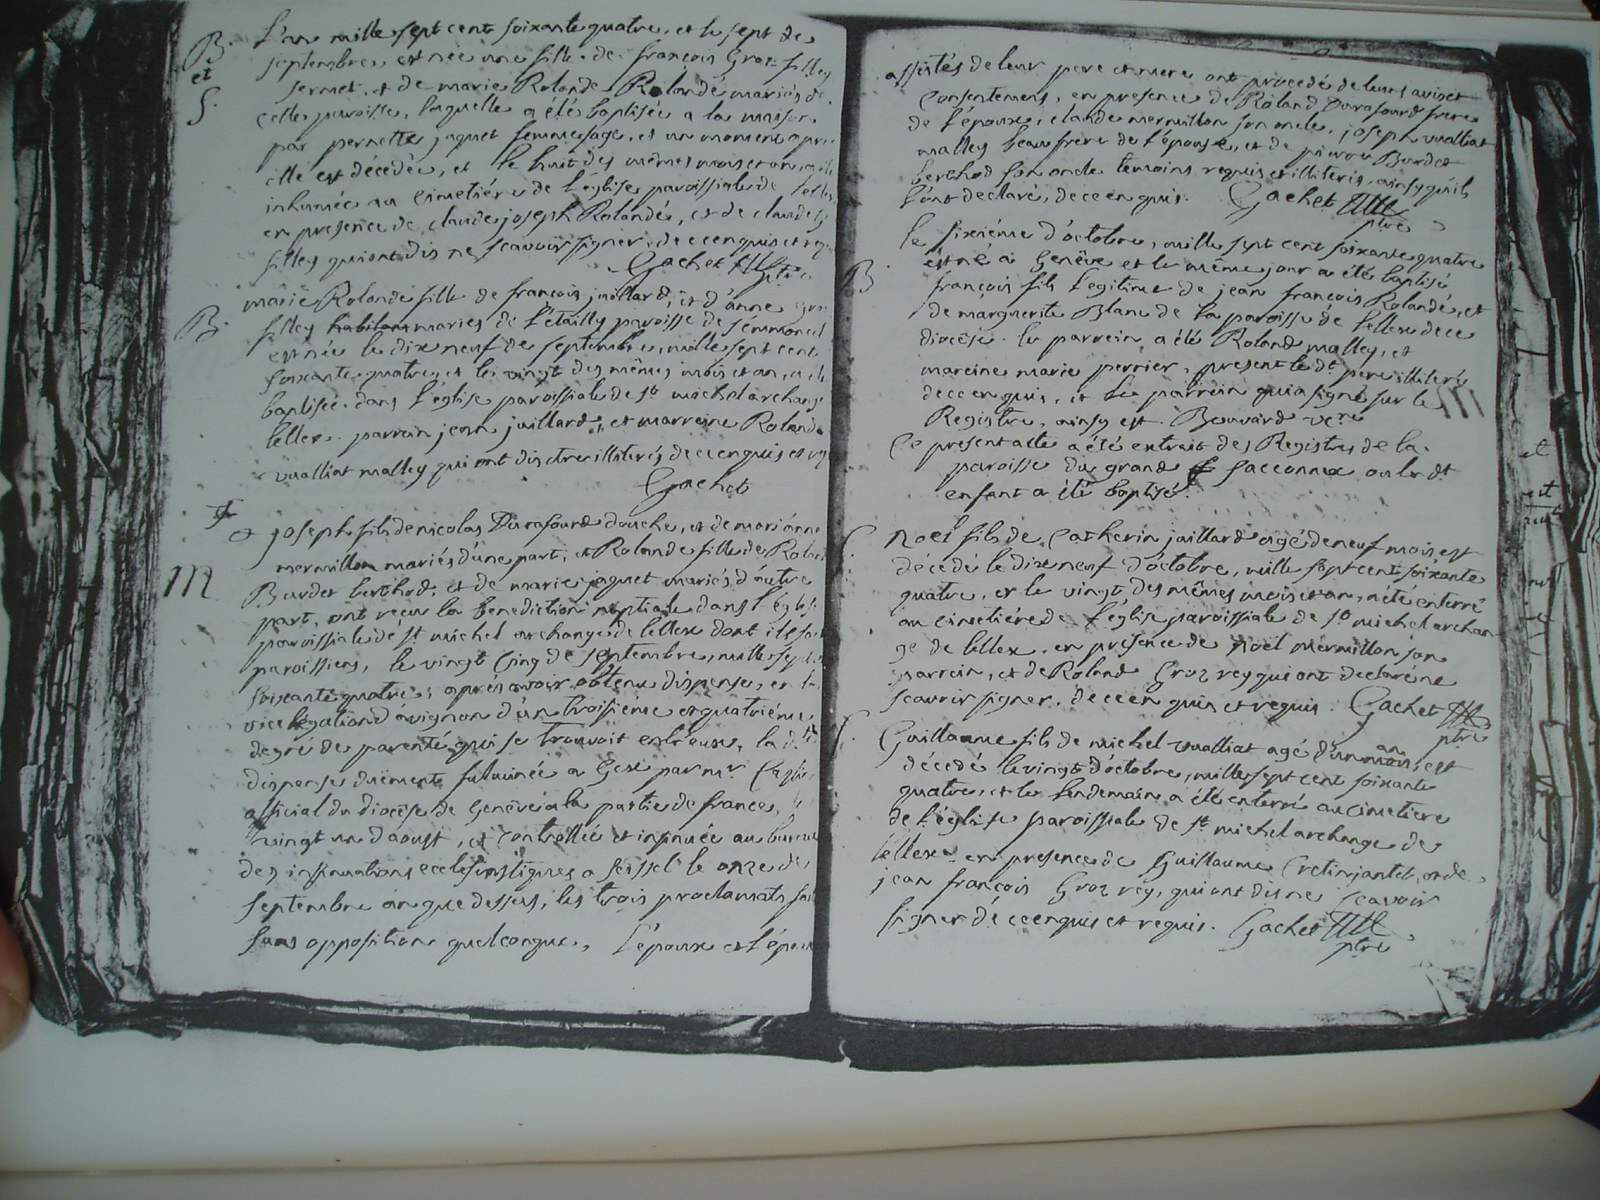 B. et S.
L'an mille sept cent soixante quatre, et le sept de
septembre, est née une fille de françois Groz filley
fermet, et de marie Rolande Rolandé mariés de
cette paroisse, laquelle a été baptisée a la maison
par pernette jaquet femme sage, et un moment après
elle est décédée, et le huit des mêmes mois et an, a été
inhumée au cimetière de l'église paroissiale de lellex
en presence de claude joseph Rolandé, et de claude
filley qui ont dis ne scavoir signer, de ce enquis et req
Gachet ptre
B.
marie Rolande fille de françois juillard, et d'anne Groz
filley habitans mariés de l'étailly paroisse de
est née le dix neuf de septembre, mille sept cent
soixante quatre, et le vingt des mêmes mois et an, a été
baptisée dans l'église paroissiale de st michel archange
lellex. parrein jean juillard, et marreine Rolande
vualliat malley qui ont dis etre illiterés de ce enquis et req
Gachet
M
joseph fils de nicolas Durafourd douche, et de marianne
mermillon mariés d'une part, et Rolande fille de Roland
Burdet berthod, et de marie jaquet mariés d'autre
part, ont reçu la benediction nuptiale dans l'église
paroissiale de st michel archange de lellex dont ils sont
paroissiens, le vingt cinq de septembre, mille sept cent
soixante quatre; après avoir obtenu dispense, en la
vice légation d'avignon d'un troisième et quatrième
degré de parenté qui se trouvoit entr'eux, la dte
dispense duëment fulminée a Gex par mr
official du diocèse de Genève a la partie de france, le
vingt un d'aoust, et controllée et insinuée au bureau
des insinuations ecclesiastiques a seissel le onze de
septembre an que dessus, les trois proclamats faits
sans opposition quelconque, l'époux et l'épouse
assistés de leur pere et mere ont procedé de leurs avis et
consentemens, en presence de Roland Durafourd frere
de l'époux, claude mermillon son oncle, joseph vualliat
malley beaufrere de l'épouse, et de pierre Burdet
berthod son oncle temoins requis et illiterés, ainsy qu'ils
l'ont declaré, de ce enquis. Gachet ptre
B
le sixième d'octobre, mille sept cent soixante quatre
est né à Genève et le même jour a été baptisé
françois fils legitime de jean françois Rolandé, et
de marguerite Blanc de la paroisse de lellex de ce
diocèse. le parrein a été Roland malley, et
mareine marie perrier, present le dt pere illiteré
de ce enquis, et le parrein qui a signé sur le
Registre, ainsy est. Bouvard vere
Ce present acte a été extrait des Registres de la
paroisse du grand Sacconnex ou le dt
enfant a été baptisé.
S.
Noël fils de Catherin juillard agé de neuf mois est
décédé le dix neuf d'octobre, mille sept cent soixante
quatre, et le vingt des mêmes mois et an, a été enterré
au cimetière de l'église paroissiale de st michel archan-
ge de lellex, en présence de Noël mermillon son
parrein, et de Roland Groz rey qui ont declaré ne
scavoir signer, de ce enquis et requis. Gachet ptre
S.
Guillaume fils de michel vualliat agé d'un mois an, est
décédé le vingt d'octobre, mille sept cent soixante
quatre, et le lendemain a été enterré au cimetiere
de l'église paroissiale de st michel archange de
lellex en presence de Guillaume Cretin jantet, et de
jean françois Groz rey, qui ont dis ne scavoir
signer de ce enquis et requis. Gachet ptre